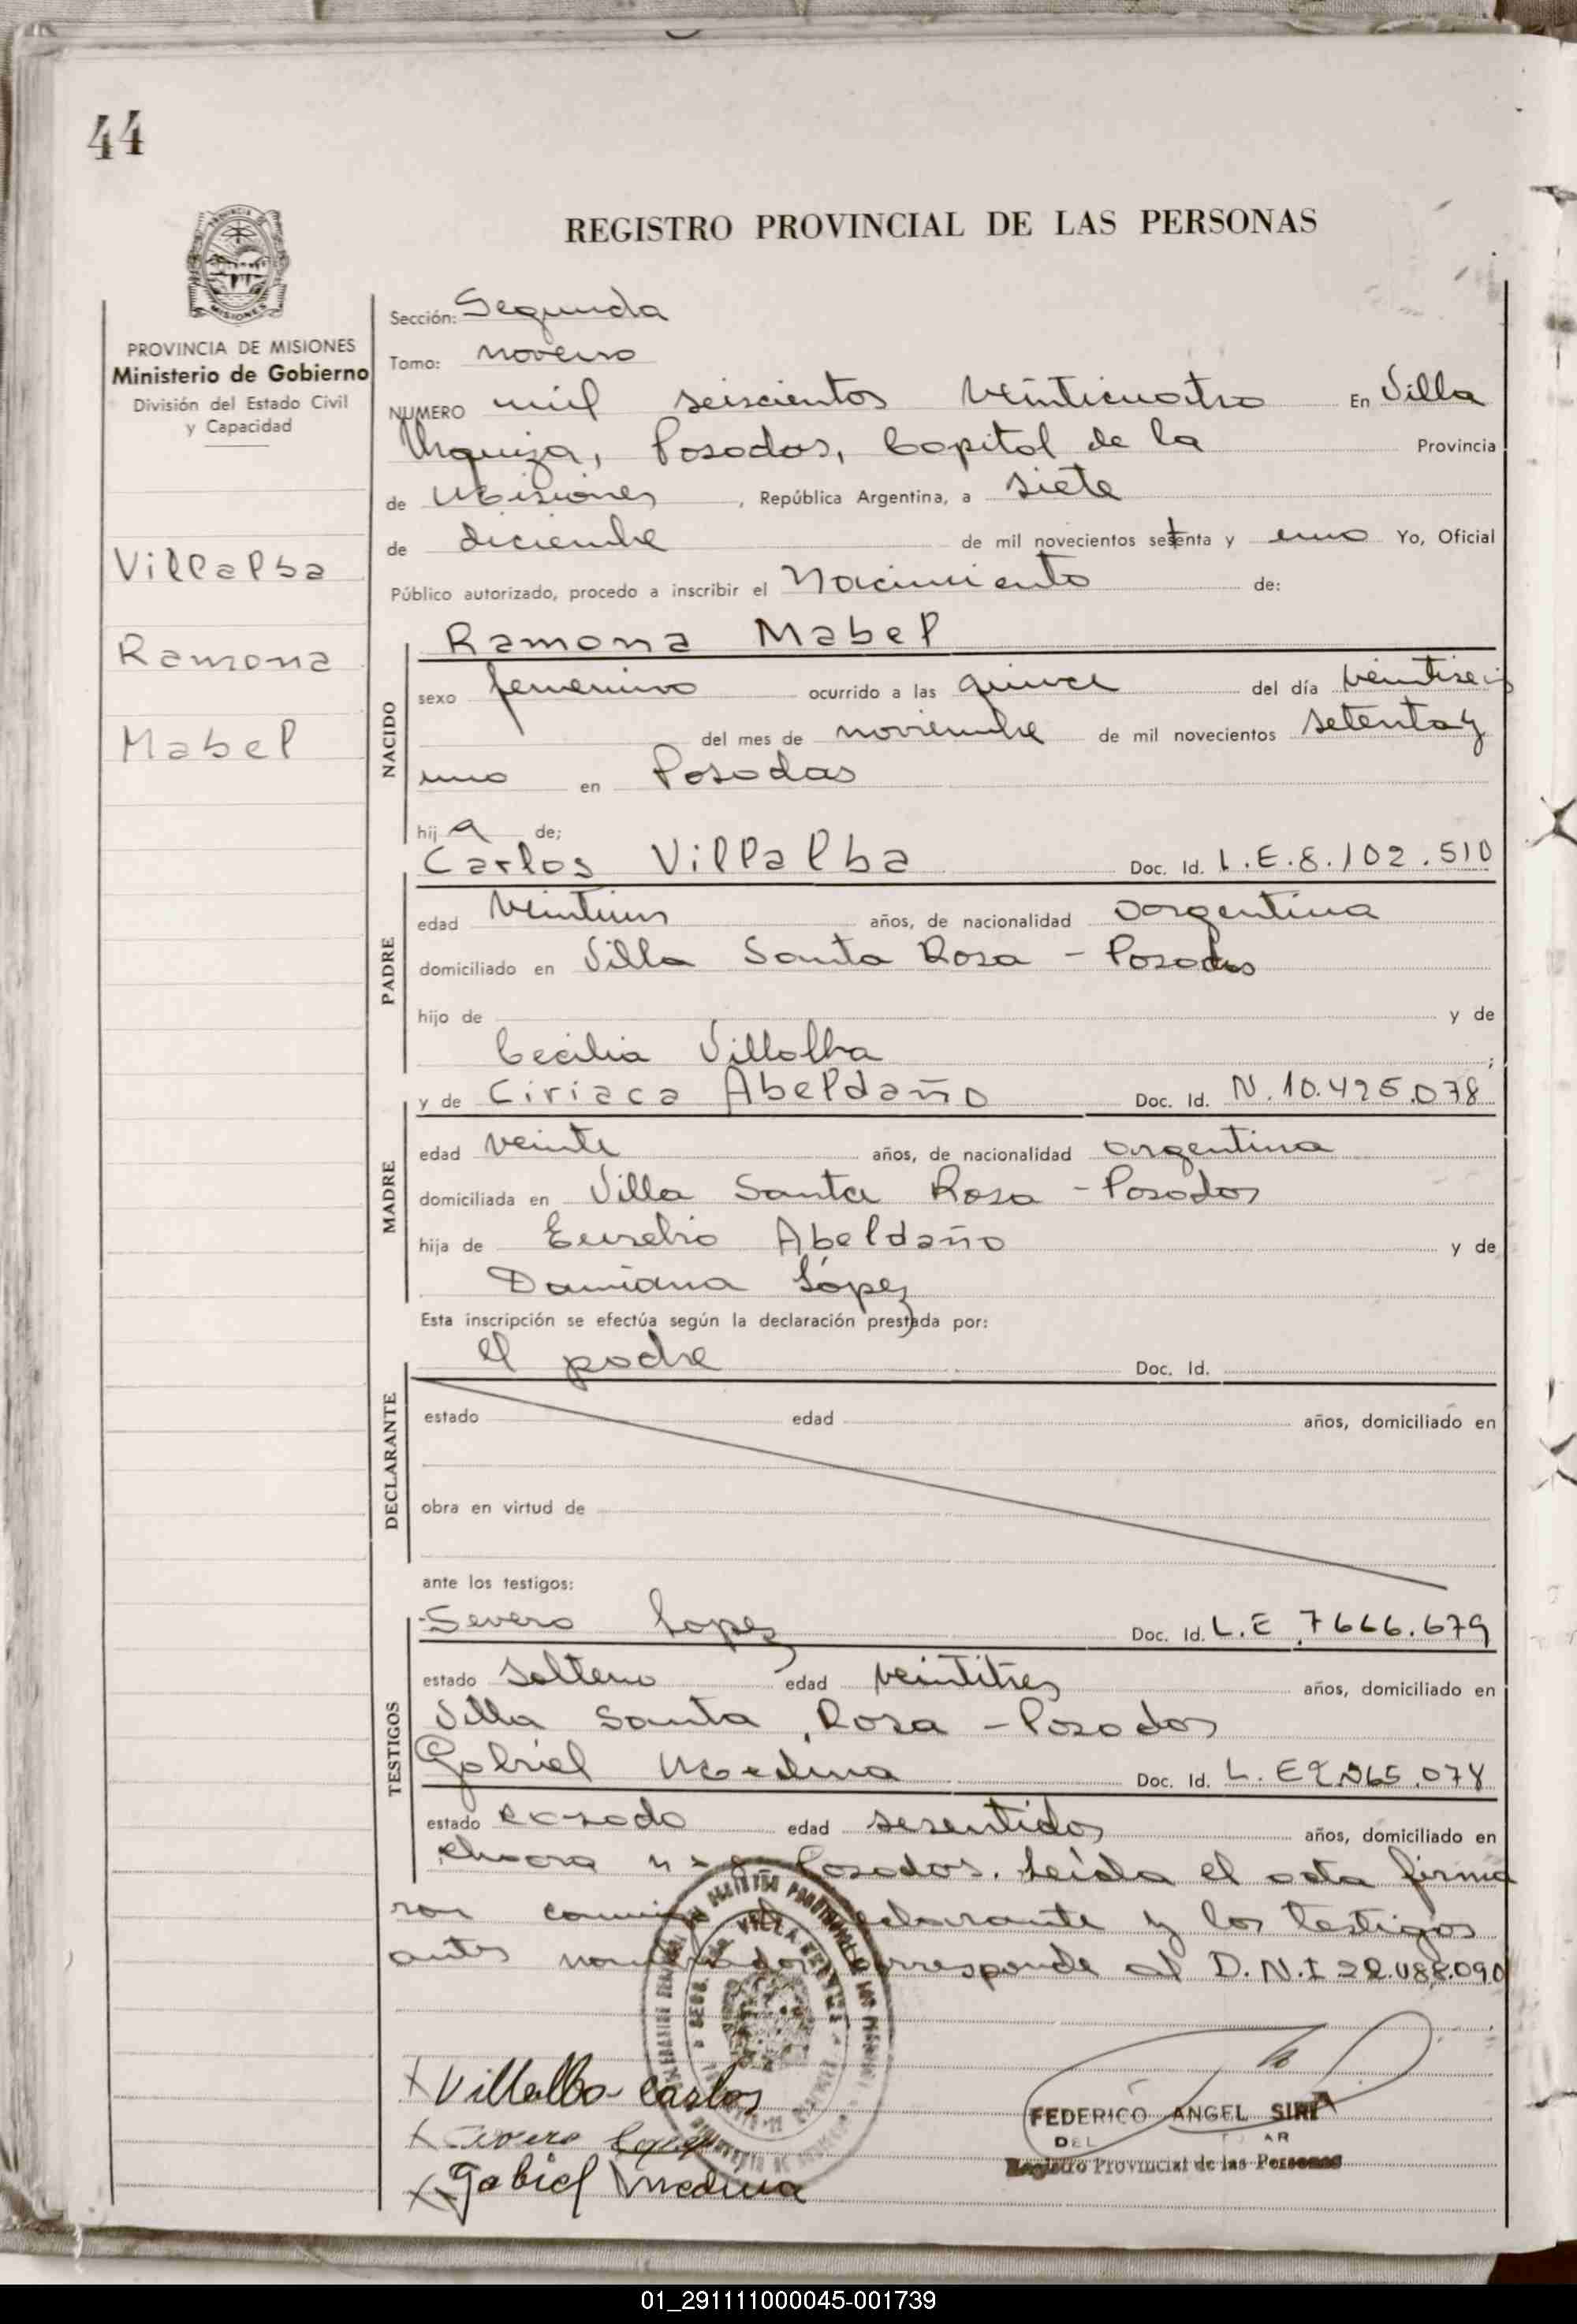 44
REGISTRO PROVINCIAL DE LAS PERSONAS
PROVINCIA DE MISIONES
Ministerio de Gobierno
División del Estado Civil
y Capacidad
Villalba
Ramona
Mabel
Sección: Segunda
Tomo: noveno
NUMERO mil seiscientos veinticuatro En Villa
Urquiza, Posadas, Capital de la Provincia
de Misiones, República Argentina, a siete
de diciembre de mil novecientos setenta y uno Yo, Oficial
Público autorizado, procedo a inscribir el Nacimiento de:
NACIDO
Ramona Mabel
sexo femenino ocurrido a las quince del día veintiseis
del mes de noviembre de mil novecientos setenta y
uno en Posadas
hij a de;
PADRE
Carlos Villalba Doc. Id. L.E.8.102.510
edad veintiun años, de nacionalidad argentina
domiciliado en Villa Santa Rosa - Posadas
hijo de y de
Cecilia Villalba ;
MADRE
y de Ciriaca Abeldaño Doc. Id. N.10.425.078
edad veinte años, de nacionalidad argentina
domiciliada en Villa Santa Rosa - Posadas
hija de Eusebio Abeldaño y de
Damiana López
Esta inscripción se efectúa según la declaración prestada por:
DECLARANTE
el padre Doc. Id.
estado edad años, domiciliado en
obra en virtud de
ante los testigos:
TESTIGOS
Severo Lopez Doc. Id. L.E 7646.679
estado soltero edad veintitres años, domiciliado en
Villa Santa Rosa - Posadas
Gabriel Medina Doc. Id. L.E
estado casado edad sesentidos años, domiciliado en
chacra Posadas. Leída el acta firma
ron conmigo el declarante y los testigos
antes nombrados corresponde al D.N.I 22.088.090
Villalba Carlos
Severo Lopez
Gabiel Medina
FEDERICO ANGEL SIRI
DEL AR
Registro Provincial de las Personas
01_291111000045-001739